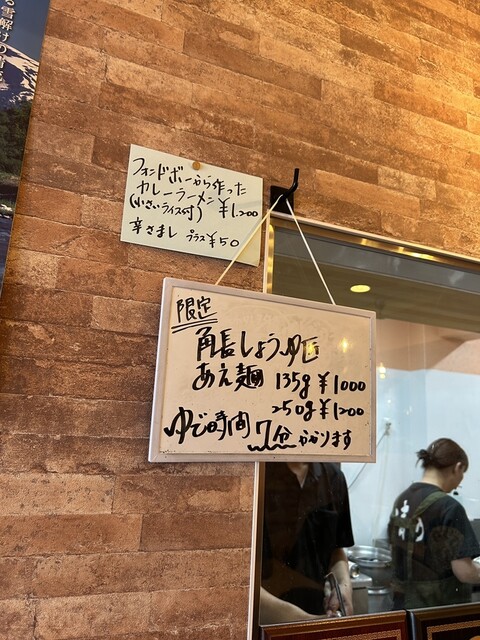 る雪解けの
フォンドボーから作った
カレーラーメン
(小さいライス付) ¥1,200
辛さまし プラス¥50
限定
角長しょうゆ匠
あえ麺 135g ¥1000
250g ¥1200
ゆで時間 7分 かかります